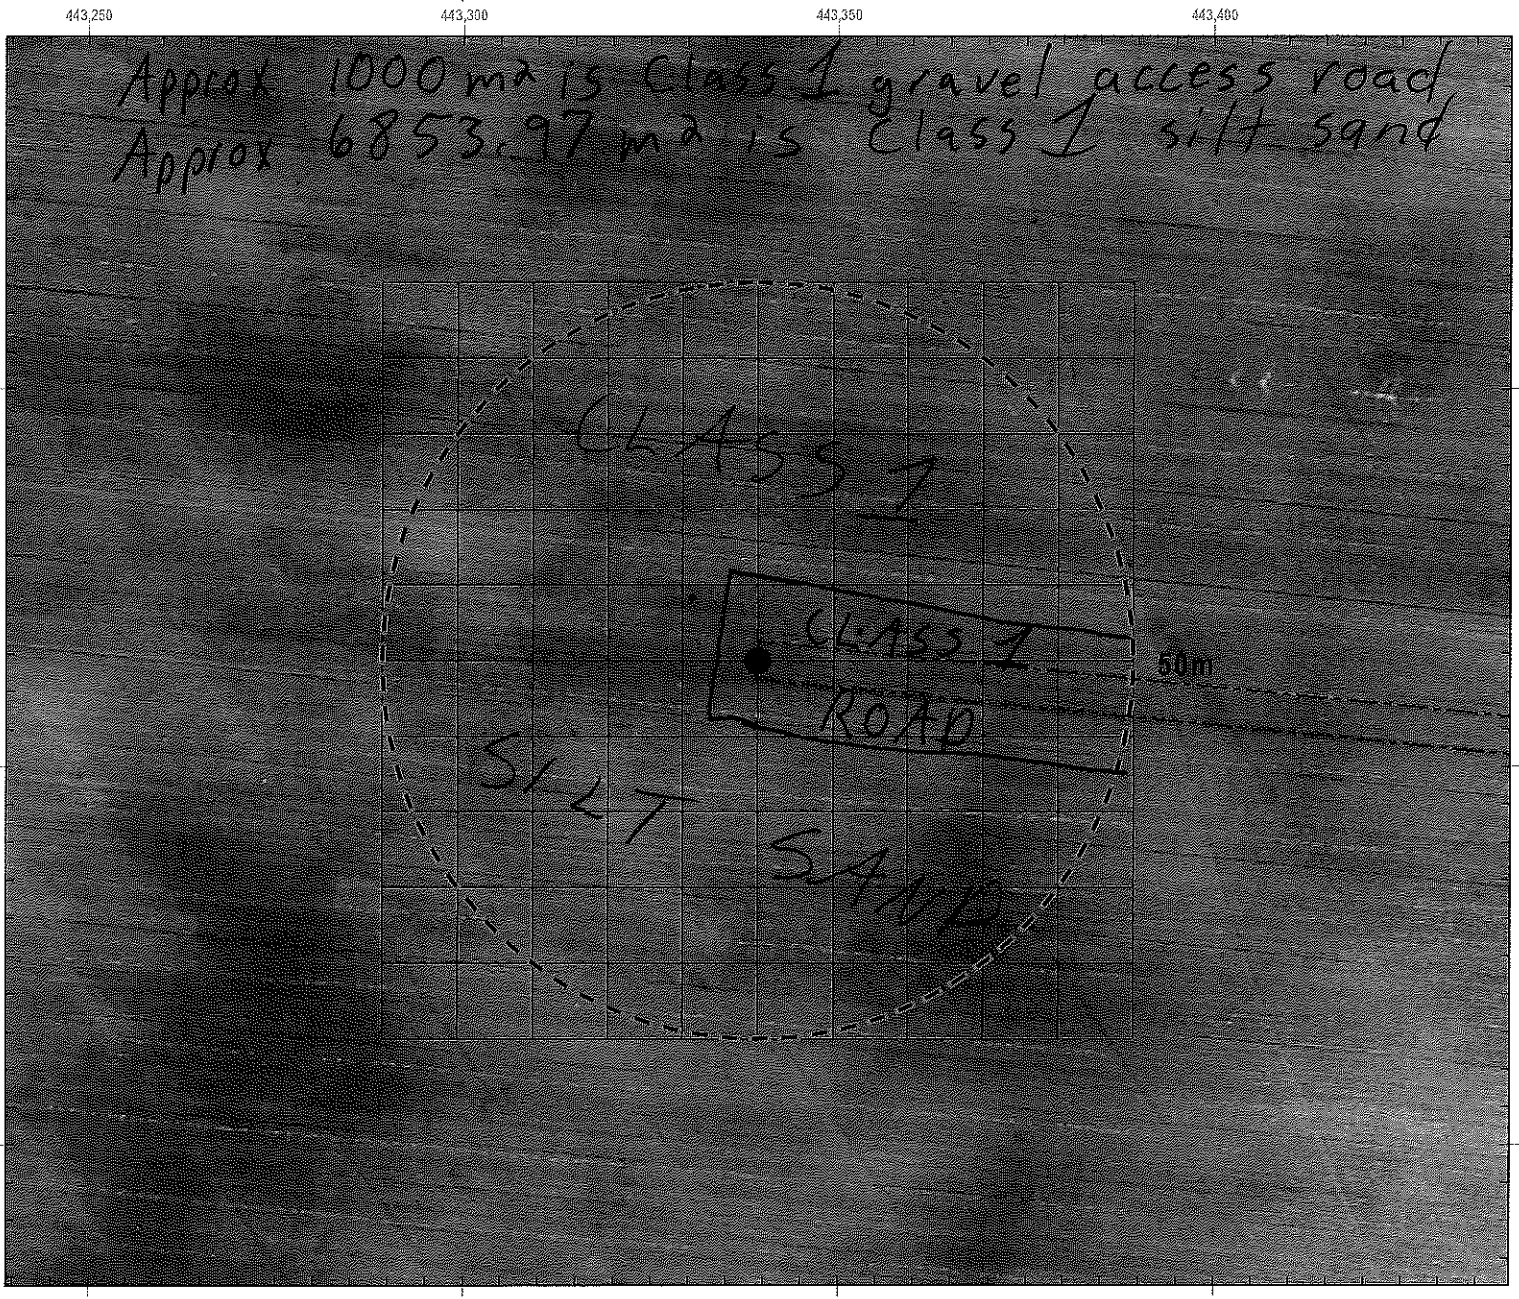 443,250 443,300 443,350 443,400
Approx 1000 m² is Class 1 gravel access road
Approx 6853.97 m² is Class 1 silt sand
CLASS 1
CLASS 1
50m
ROAD
SILT
SAND